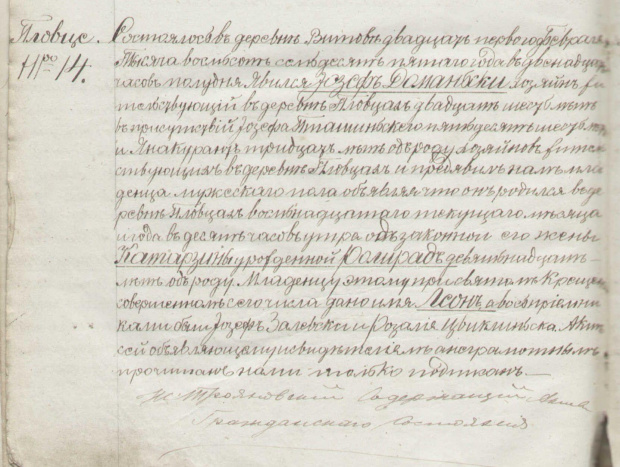 Пловце.
№ 14.
Состоялось въ деревнѣ Витовъ двадцать перваго Февраля
Тысяча восемьсотъ семьдесятъ пятаго года въ двенадцать
часовъ полудня Явился Іозефъ Доманьски хозяинъ жи
тельствующій въ деревнѣ Пловцахъ двадцать лѣтъ
въ присутствіи Іозефа пятьдесятъ
и Яна тридцать лѣтъ отъ роду хозяйновъ жител
ствующихъ въ деревнѣ Пловцахъ и предъявилъ намъ мла
денца мужескаго пола объявляя что онъ родился въ де
ревнѣ Пловцахъ восьмнадцатаго текущаго мѣсяца
и года въ десять часовъ утра отъ законной его жены
Катаржины урожденной девятнадцать
лѣтъ отъ роду. Младенцу этому при святомъ Крещеніи
совершенномъ сего числа дано имя Леонъ а воспріемни
ками были Іозефъ Залевски и Розалія Актъ
сей объявляющему и свидѣтелямъ неграмотнымъ
прочитанъ нами только подписанъ.—
Содержащій Акты
Гражданскаго Состоянія